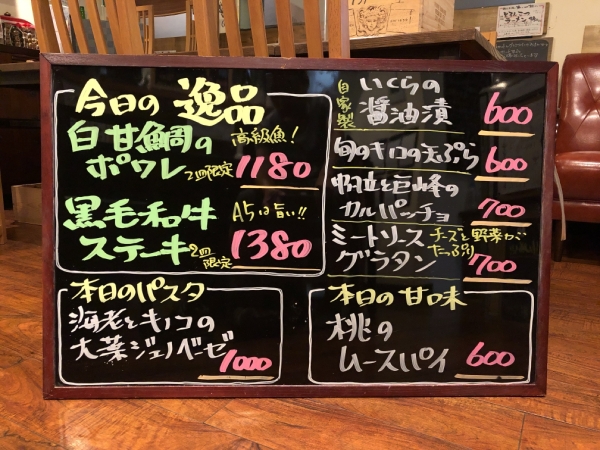 今日の 逸品
白甘鯛の 高級魚!
ポワレ 2皿限定 1180
黒毛和牛 A5は旨い!!
ステーキ 2皿限定 1380
自家製 いくらの
醤油漬 600
旬のキノコの天ぷら 600
帆立と巨峰の
カルパッチョ 700
ミートソース チーズと野菜が
グラタン たっぷり 700
本日のパスタ
海老とキノコの
大葉ジェノベーゼ 1000
本日の甘味
桃の
ムースパイ 600